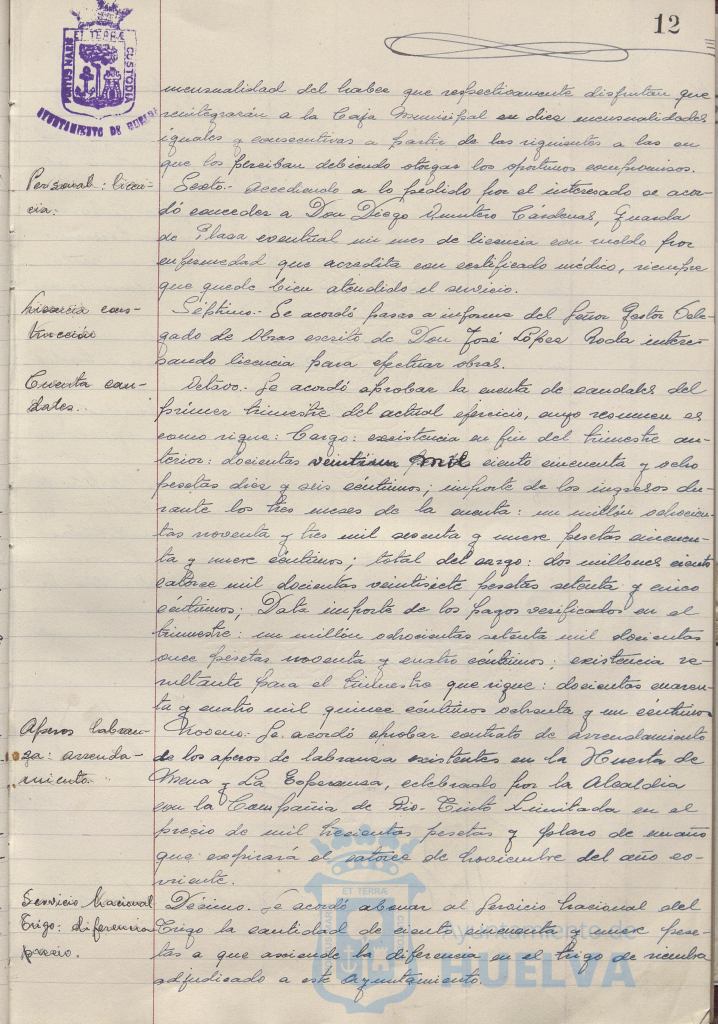 12
ET TERRÆ
PORTUS MARIS
CUSTODIA
AYUNTAMIENTO DE HUELVA
mensualidad del haber que respectivamente disfrutan que
reintegrarán a la Caja Municipal en diez mensualidades
iguales y consecutivas a partir de las siguientes a las en
que los perciban debiendo otorgar los oportunos compromisos.
Personal: licen-
cia:
Sexto.- Accediendo a lo pedido por el interesado se acor-
dó conceder a Don Diego Quintero Cárdenas, Guarda
de Plaza eventual un mes de licencia con sueldo por
enfermedad que acredita con certificado médico, siempre
que quede bien atendido el servicio.
Licencia cons-
trucción
Séptimo.- Se acordó pasar a informe del Señor Gestor Dele-
gado de Obras escrito de Don José López Roda intere-
sando licencia para efectuar obras.
Cuenta cau-
dales..
Octavo.- Se acordó aprobar la cuenta de caudales del
primer trimestre del actual ejercicio, cuyo resumen es
como sigue: Cargo: existencia en fin del trimestre an-
terior: docientas veintiun mil ciento cincuenta y ocho
pesetas diez y seis céntimos; importe de los ingresos du-
rante los tres meses de la cuenta: un millón ochocien-
tas noventa y tres mil sesenta y nueve pesetas cincuen-
ta y nueve céntimos; total del cargo: dos millones ciento
catorce mil docientas veintisiete pesetas setenta y cinco
céntimos; Data importe de los pagos verificados en el
trimestre: un millón ochocientas setenta mil docientas
once pesetas noventa y cuatro céntimos; existencia re-
sultante para el trimestre que sigue: docientas cuaren-
ta y cuatro mil quince céntimos ochenta y un céntimos
Aperos labran-
za: arrenda-
miento.
Noveno.- Se acordó aprobar contrato de arrendamiento
de los aperos de labranza existentes en la Huerta de
Mena y La Esperanza, celebrado por la Alcaldia
con la Compañia de Rio-Tinto Limitada en el
precio de mil trecientas pesetas y plazo de un año
que expirará el catorce de Noviembre del año co-
rriente.
Servicio Nacional
Trigo: diferencia
precio.
Décimo. Se acordó abonar al Servicio Nacional del
Trigo la cantidad de ciento cincuenta y nueve pese-
tas a que asciende la diferencia en el trigo de siembra
adjudicado a este Ayuntamiento.
ET TERRÆ
Ayuntamiento de
HUELVA